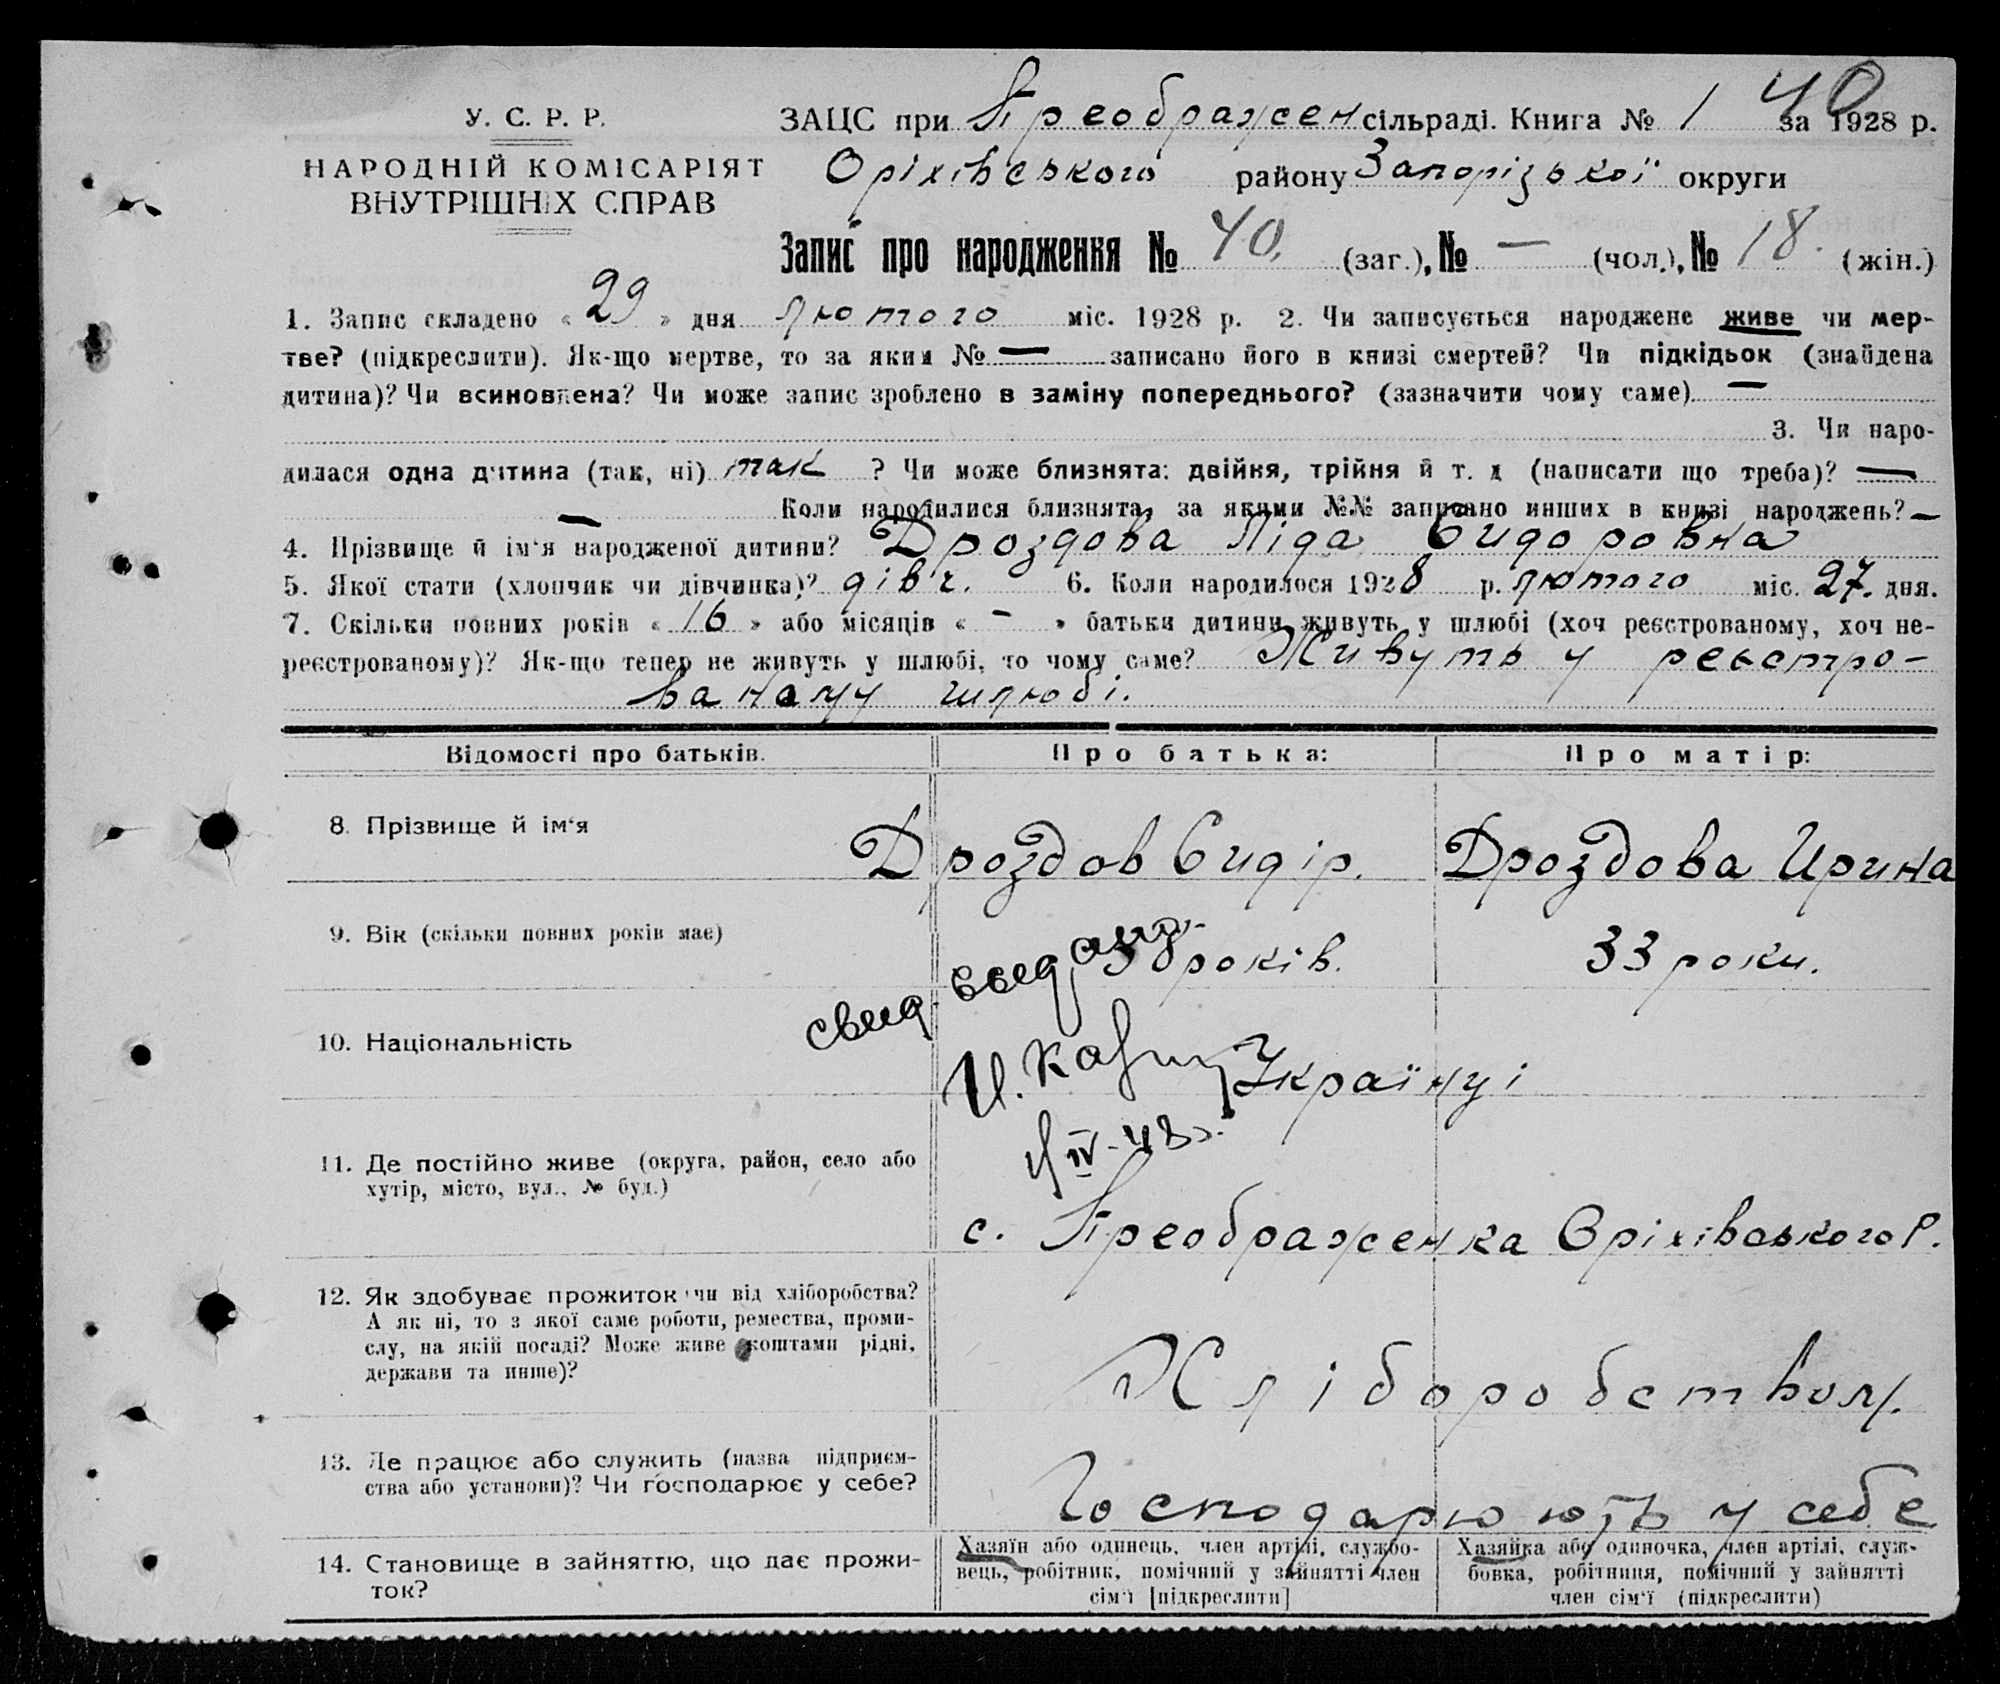 40
У. С. Р. Р.
НАРОДНІЙ КОМІСАРІЯТ
ВНУТРІШНІХ СПРАВ
ЗАЦС при Преображен сільраді. Книга № 1 за 1928 р.
Оріхівського району Запорізької округи
Запис про народження № 40. (заг.), № — (чол.), № 18. (жін.)
1. Запис складено « 29 » дня лютого міс. 1928 р. 2. Чи записується народжене живе чи мер-
тве? (підкреслити). Як-що мертве, то за яким № — записано його в книзі смертей? Чи підкідьок (знайдена
дитина)? Чи всиновлена? Чи може запис зроблено в заміну попереднього? (зазначити чому саме) —
3. Чи наро-
дилася одна дитина (так, ні) так ? Чи може близнята: двійня, трійня й т. д (написати що треба)? —
— Коли народилися близнята, за якими №№ записано инших в книзі народжень? —
4. Прізвище й ім'я народженої дитини? Дроздова Ліда Сидоровна
5. Якої стати (хлопчик чи дівчинка)? дівч. 6. Коли народилося 1928 р. лютого міс. 27. дня.
7. Скільки повних років « 16 » або місяців « - » батьки дитини живуть у шлюбі (хоч реєстрованому, хоч не-
реєстрованому)? Як-що тепер не живуть у шлюбі, то чому саме? Живуть у реєстро-
ваному шлюбі.
Відомості про батьків. Про батька: Про матір:
8. Прізвище й ім'я Дроздов Сидір. Дроздова Ирина
9. Вік (скільки повних років має) 38 років. 33 роки.
свид.
10. Національність Українці
IV-48г.
11. Де постійно живе (округа, район, село або
хутір, місто, вул., № буд.)
с. Преображенка Оріхівського Р.
12. Як здобуває прожиток чи від хліборобства?
А як ні, то з якої саме роботи, ремества, проми-
слу, на якій посаді? Може живе коштами рідні,
держави та инше)?
Хліборобством.
13. Де працює або служить (назва підприєм-
ства або установи)? Чи господарює у себе?
Господарюють у себе
14. Становище в зайняттю, що дає прожи-
ток?
Хазяїн або одинець, член артілі, службо-
вець, робітник, помічний у зайнятті член
сім'ї [підкреслити]
Хазяйка або одиночка, член артілі, служ-
бовка, робітниця, помічний у зайнятті
член сім'ї (підкреслити)